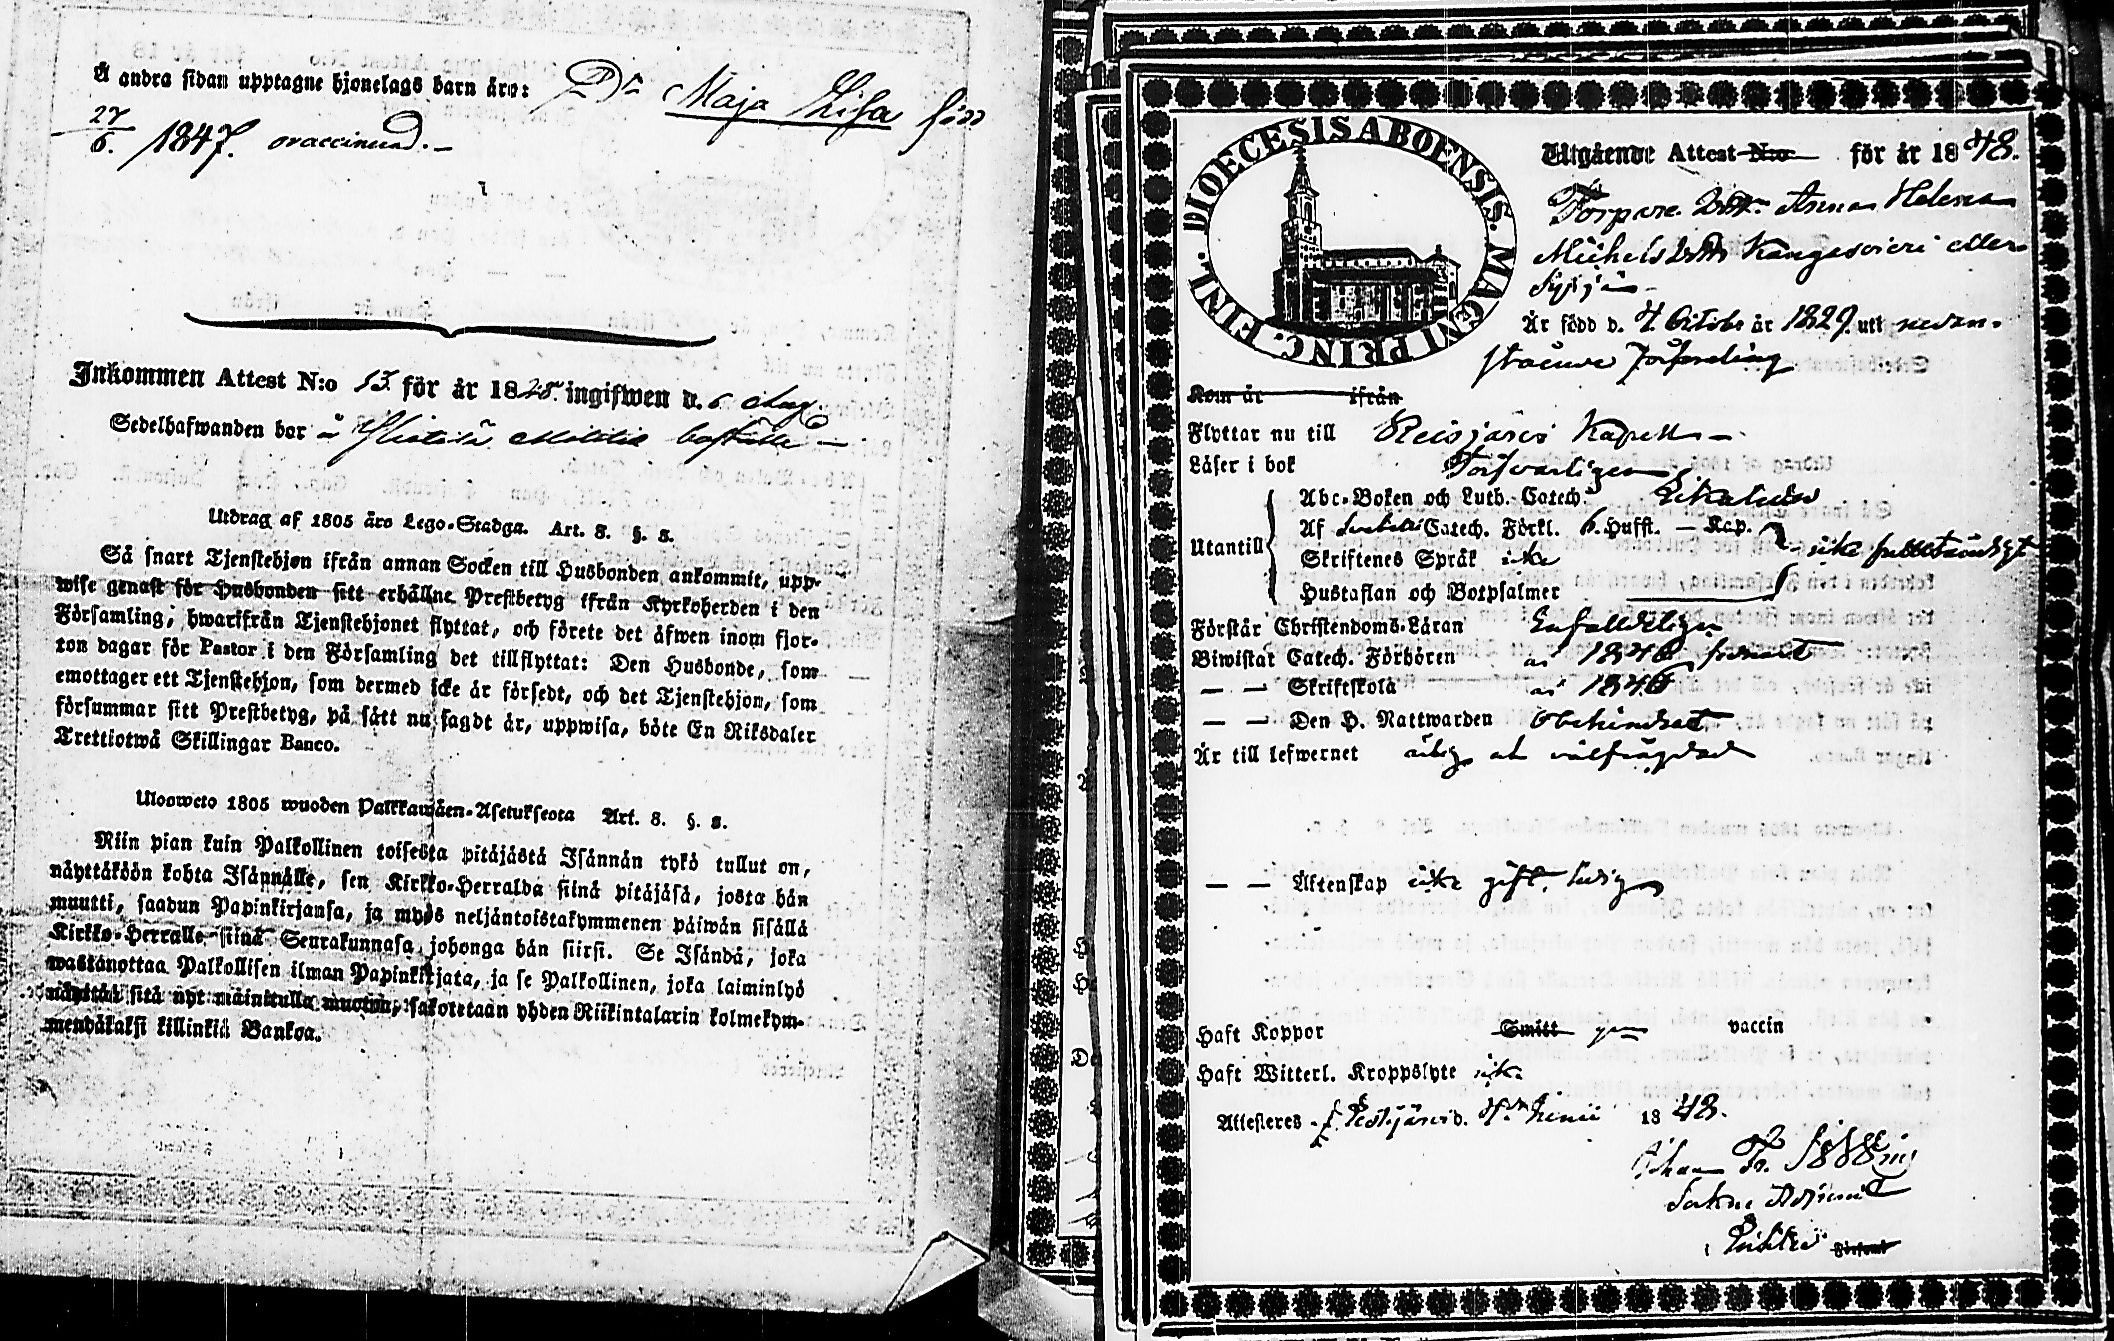 Å andra sidan upptagne hjonelags barn äro: Dr Maja Lisa född
27/6. 1847. ovaccinerad.
Inkommen Attest N:o 13. för år 1848. ingifwen d. 6 Aug
Sedelhafwanden bor å
Utdrag af 1805 års Lego-Stadga. Art. 8. §. 2.
Så snart Tjenstehjon ifrån annan Socken till Husbonden ankommit, upp-
wise genast för Husbonden sitt erhållne Prestbetyg ifrån Kyrkoherden i den
Församling, hwarifrån Tjenstehjonet flyttat, och förete det äfwen inom fjor-
ton dagar för Pastor i den Församling det tillflyttat: Den Husbonde, som
emottager ett Tjenstehjon, som dermed icke är försedt, och det Tjenstehjon, som
försummar sitt Prestbetyg, på sätt nu sagdt är, uppwisa, böte En Riksdaler
Trettiotwå Skillingar Banco.
Ulosweto 1805 wuoden Palkkawäen-Asetuksesta Art. 8. §. 2.
Niin pian kuin Palkollinen toisesta pitäjästä Isännän tykö tullut on,
näyttäköön kohta Isännälle, sen Kirkko-Herralda siinä pitäjäsä, josta hän
muutti, saadun Papinkirjansa, ja myös neljäntoistakymmenen päiwän sisällä
Kirkko-Herralle siinä Seurakunnasa johonga hän siirsi. Se Isändä, joka
wastanottaa Palkollisen ilman Papinkirjata, ja se Palkollinen, joka laiminlyö
näyttää sitä nyt mainitulla muoton, sakotetaan yhden Riikintalarin kolmekym-
mendäkaksi killinkiä Bankoa.
DIOECESIS ABOENSIS. MAGNI PRINC. FINL.
Utgående Attest N:o för år 1848.
Torpare Dott. Anna Helena
Michelsdotter Kangasvieri eller
Är född d. 4 Octobr år 1829. uti nedan-
stående Församling
Kom år ifrån
Flyttar nu till Reisjärvi Kapell
Läser i bok Försvarligen
Abc-Boken och Luth. Catech.
Utantill Af Catech. Förkl. 6. Hufst. — Kap. icke fullständigt
Skriftenes Språk icke
Hustaflan och Botpsalmer
Förstår Christendoms-Läran Enfaldeligen
Biwistat Catech. Förhören år 1846 senast
— — Skriftskola år 1846
— — Den H. Nattwarden obehindrat
Är till lefwernet ärlig och välfrägdad
— — Äktenskap icke gift, ledig
Haft Koppor Smitt gm vaccin
Haft Witterl. Kroppslyte icke
Attesteres f. Pestijärvi d. 4 Junii 1848.
Johan Fr.